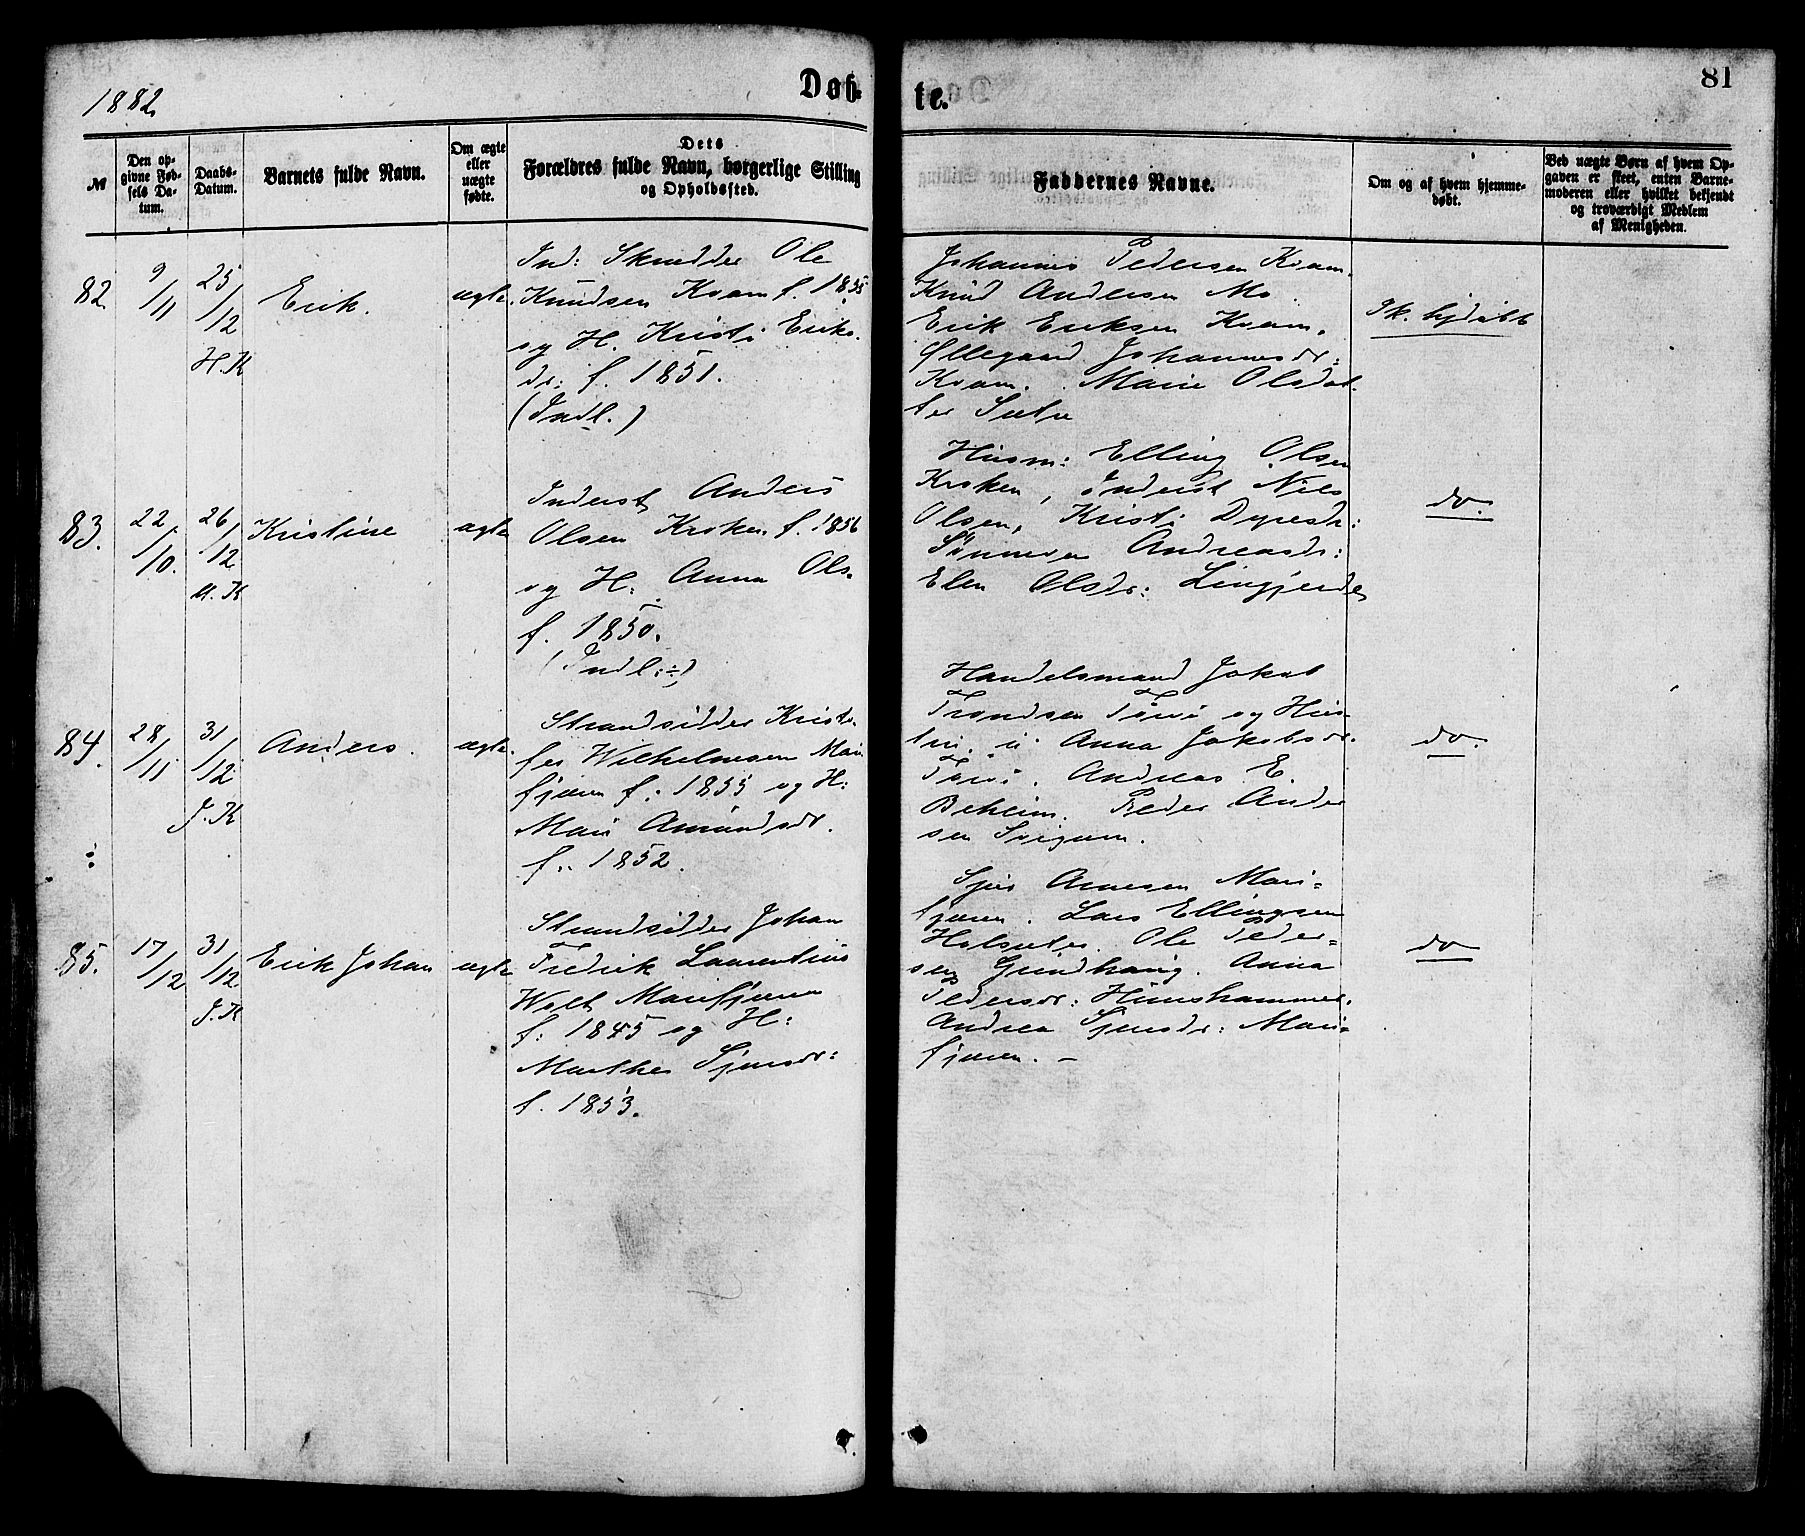 1882.
Døb-
te.
81
№
Den op-
givne Fød-
sels Da-
tum.
Daabs-
Datum.
Barnets fulde Navn.
Om ægte
eller
uægte
fødte.
Dets
Forældres fulde Navn, borgerlige Stilling
og Opholdssted.
Faddernes Navne.
Om og af hvem hjemme-
døbt.
Ved uægte Børn af hvem Op-
gaven er skeet, enten Barne-
moderen eller hvilket bekjendt
og troværdigt Medlem
af Menigheden.
82
9/11
25/12
H. K
Erik.
ægte.
Ind: Skrædder Ole
Knudsen Kvam f. 1835
og H. Kristi Eriks-
dr: f. 1851.
(Indl.)
Johannes Pedersen Kvam.
Knud Andersen Mo.
Erik Eriksen Kvam.
Øllegaard Johannesdr:
Kvam. Marie Olsdat-
ter Sætre
Pk. hjdøbt
83.
22/10.
26/12
Kristine
ægte
Inderst Anders
Olsen Kroken f. 1856
og H: Anna Ols.
f. 1850.
(Indl.:)
Husm: Elling Olsen
Kroken, Inderst Nils
Olsen, Kristi Dyresdr:
Sønneva Andreasdr:
Elen Olsdr: Lingjerde
do.
84.
28/11
31/12
J. K
Anders.
ægte.
Strandsidder Kristo-
fer Wilhelmsen Mari
fjæren f: 1855 og H:
Mari Amundsdr.
f.. 1852.
Handelsmand Jakob
Trondsen Tørvi og Hus-
tru. u Anna Jakobsdr.
Tørvi. Andreas E.
Beheim. Peder Ander
sen Svigum.
do.
85.
17/12
31/12
J. K
Erik Johan
ægte
Strandsidder Johan
Fredrik Laurentius
Welt Marifjæren
f: 1845 og H:
Marthe Sjursdr:
f. 1853.
Sjur Arnesen Mari-
fjæren. Lars Ellingsen
Holsæter. Ole Peder-
sen Grindhaug. Anna
Pedersdr: Hunshammer.
Andrea Sjursdr: Mari-
fjæren. –
do